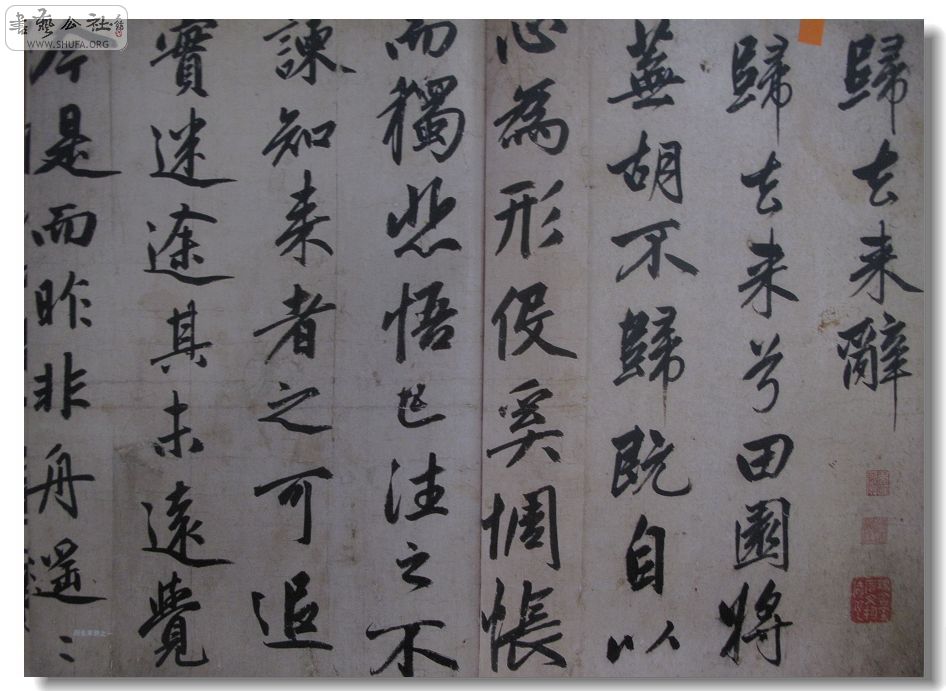 歸去来辭
歸去来兮田園將
蕪胡不歸既自以
心為形役奚惆悵
而獨悲悟已往之不
諫知来者之可追
實迷途其未遠覺
今是而昨非舟遥〻
書藝公社
WWW.SHUFA.ORG